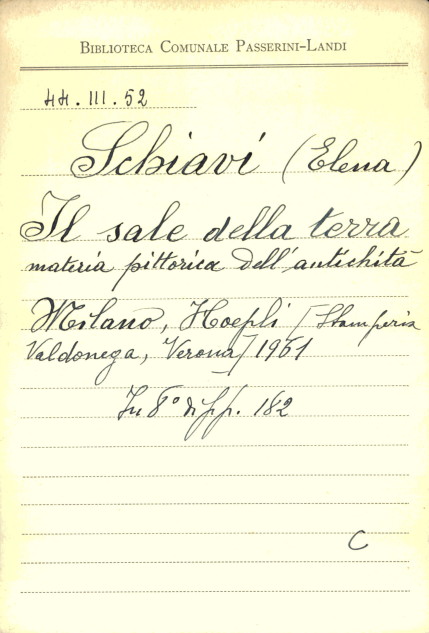 BIBLIOTECA COMUNALE PASSERINI-LANDI
44.III.52
Schiavi (Elena)
Il sale della terra
materia pittorica dell'antichità
Milano, Hoepli [Stamperia
Valdonega, Verona] 1961
In 8° di pp. 182
C